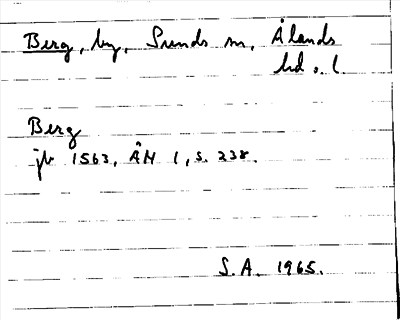 Berg, by, Sunds sn, Ålands
hd o. l.
Berg
jb 1563, ÅH 1, s. 238.
S.A. 1965.